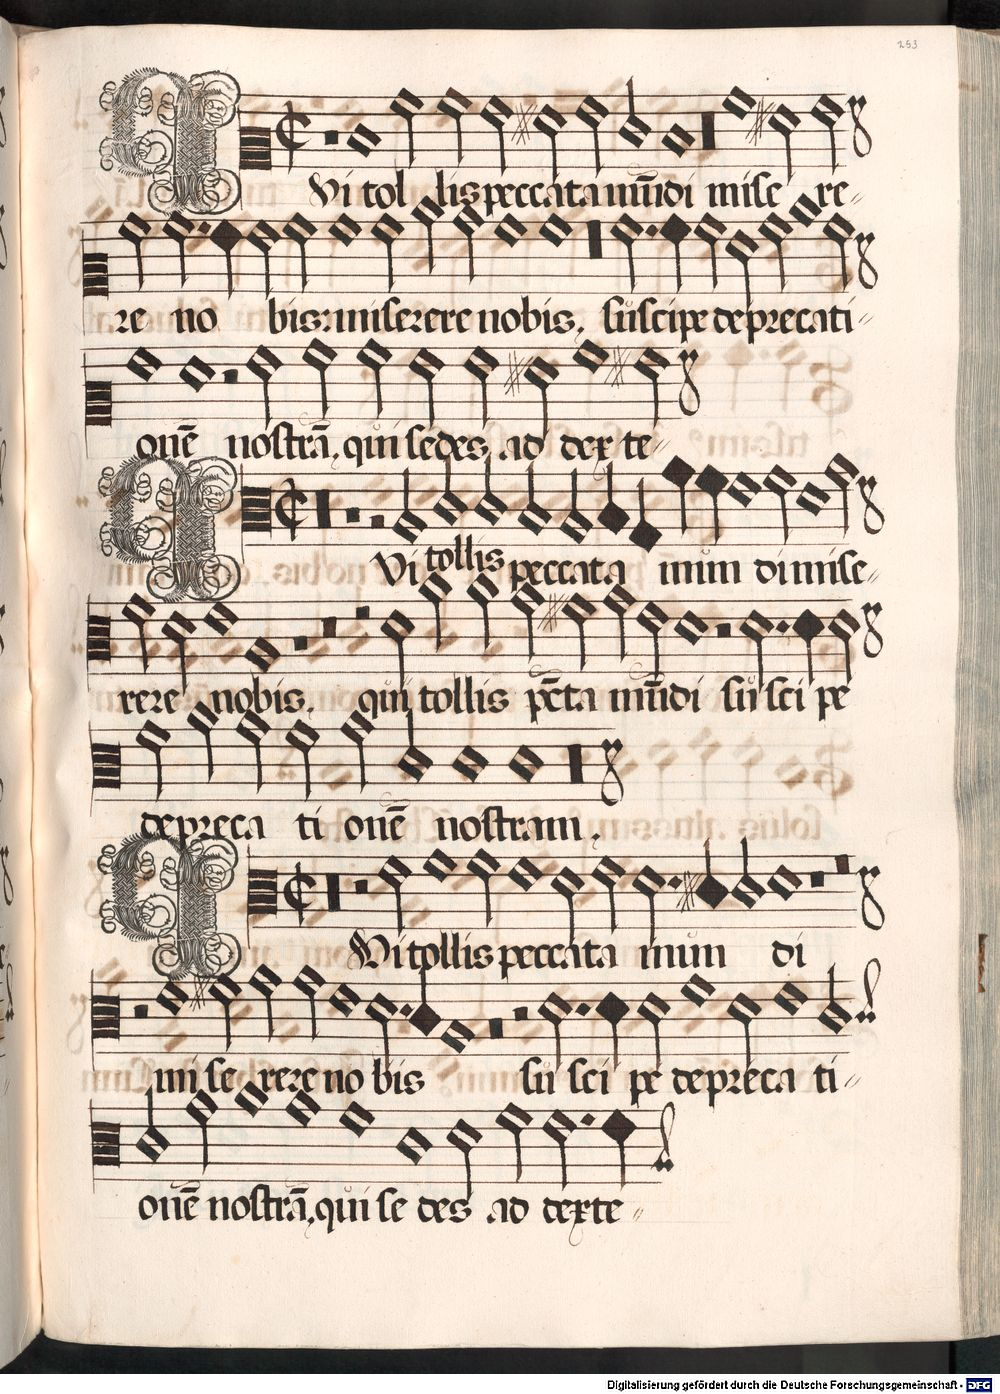 253
Qui tol lis peccata mūdi mise re-
re no bis: miserere nobis. suscipe deprecati-
onē nostrā, qui sedes ad dexte-
Qui tollis peccata mun di mise-
rere nobis. qui tollis pcta mūdi su sci pe
depreca ti onē nostram.
Qui tollis peccata mun di
mi se rere no bis su sci pe depreca ti-
onē nostrā, qui se des ad dexte-
Digitalisierung gefördert durch die Deutsche Forschungsgemeinschaft - DFG